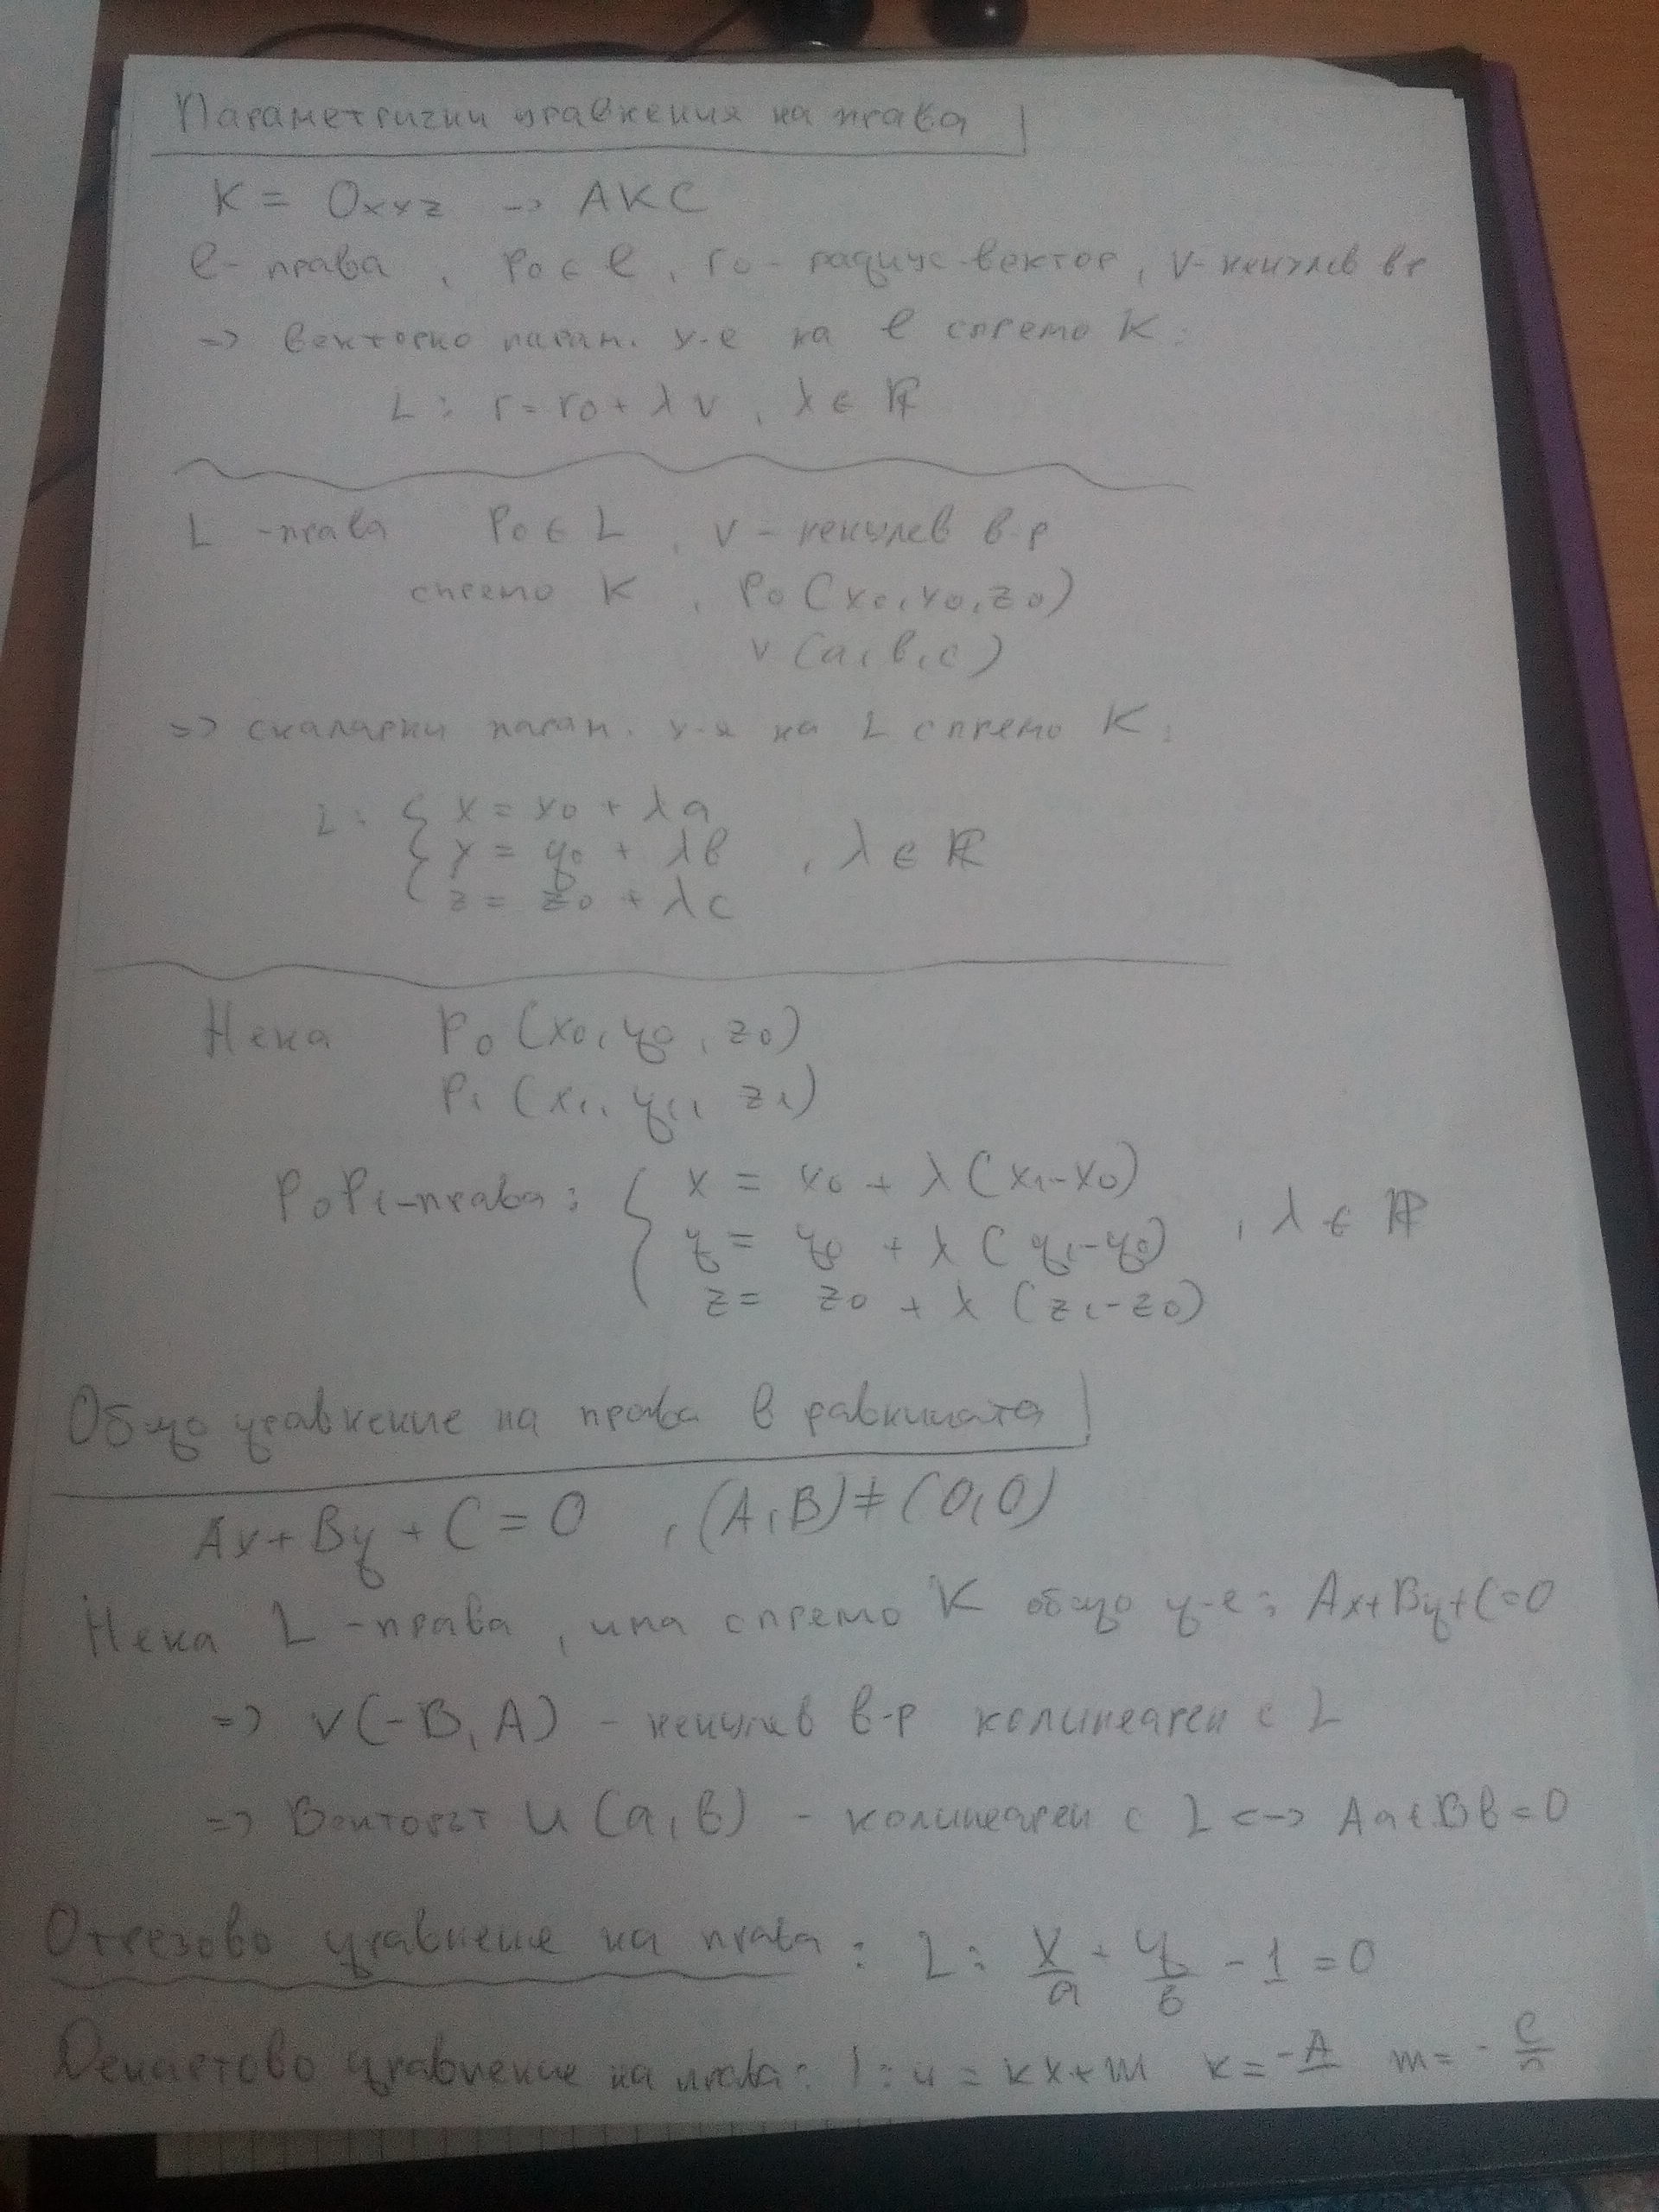 Параметрични уравнения на права
K = Oxyz -> АКС
l - права, P0 ∈ l, r0 - радиус-вектор, v - ненулев вр
=> Векторно парам. у-е на l спрямо K:
L: r = r0 + λv, λ ∈ ℝ
L - права P0 ∈ L, v - ненулев в-р
спрямо K, P0(x0, y0, z0)
v(a, b, c)
=> скаларни парам. у-я на L спрямо K:
L: { x = x0 + λa
y = y0 + λb , λ ∈ ℝ
z = z0 + λc
Нека P0(x0, y0, z0)
P1(x1, y1, z1)
P0P1 - права: { x = x0 + λ(x1-x0)
y = y0 + λ(y1-y0) , λ ∈ ℝ
z = z0 + λ(z1-z0)
Общо уравнение на права в равнината
Ax + By + C = 0 , (A, B) ≠ (0, 0)
Нека L - права, има спрямо K общо у-е: Ax+By+C=0
=> v(-B, A) - ненулев в-р колинеарен с L
=> Векторът u(a, b) - колинеарен с L <-> Aa+Bb=0
Отрезово уравнение на права: L: x/a + y/b - 1 = 0
Декартово уравнение на права: l: y = kx+m k = -A m = - C